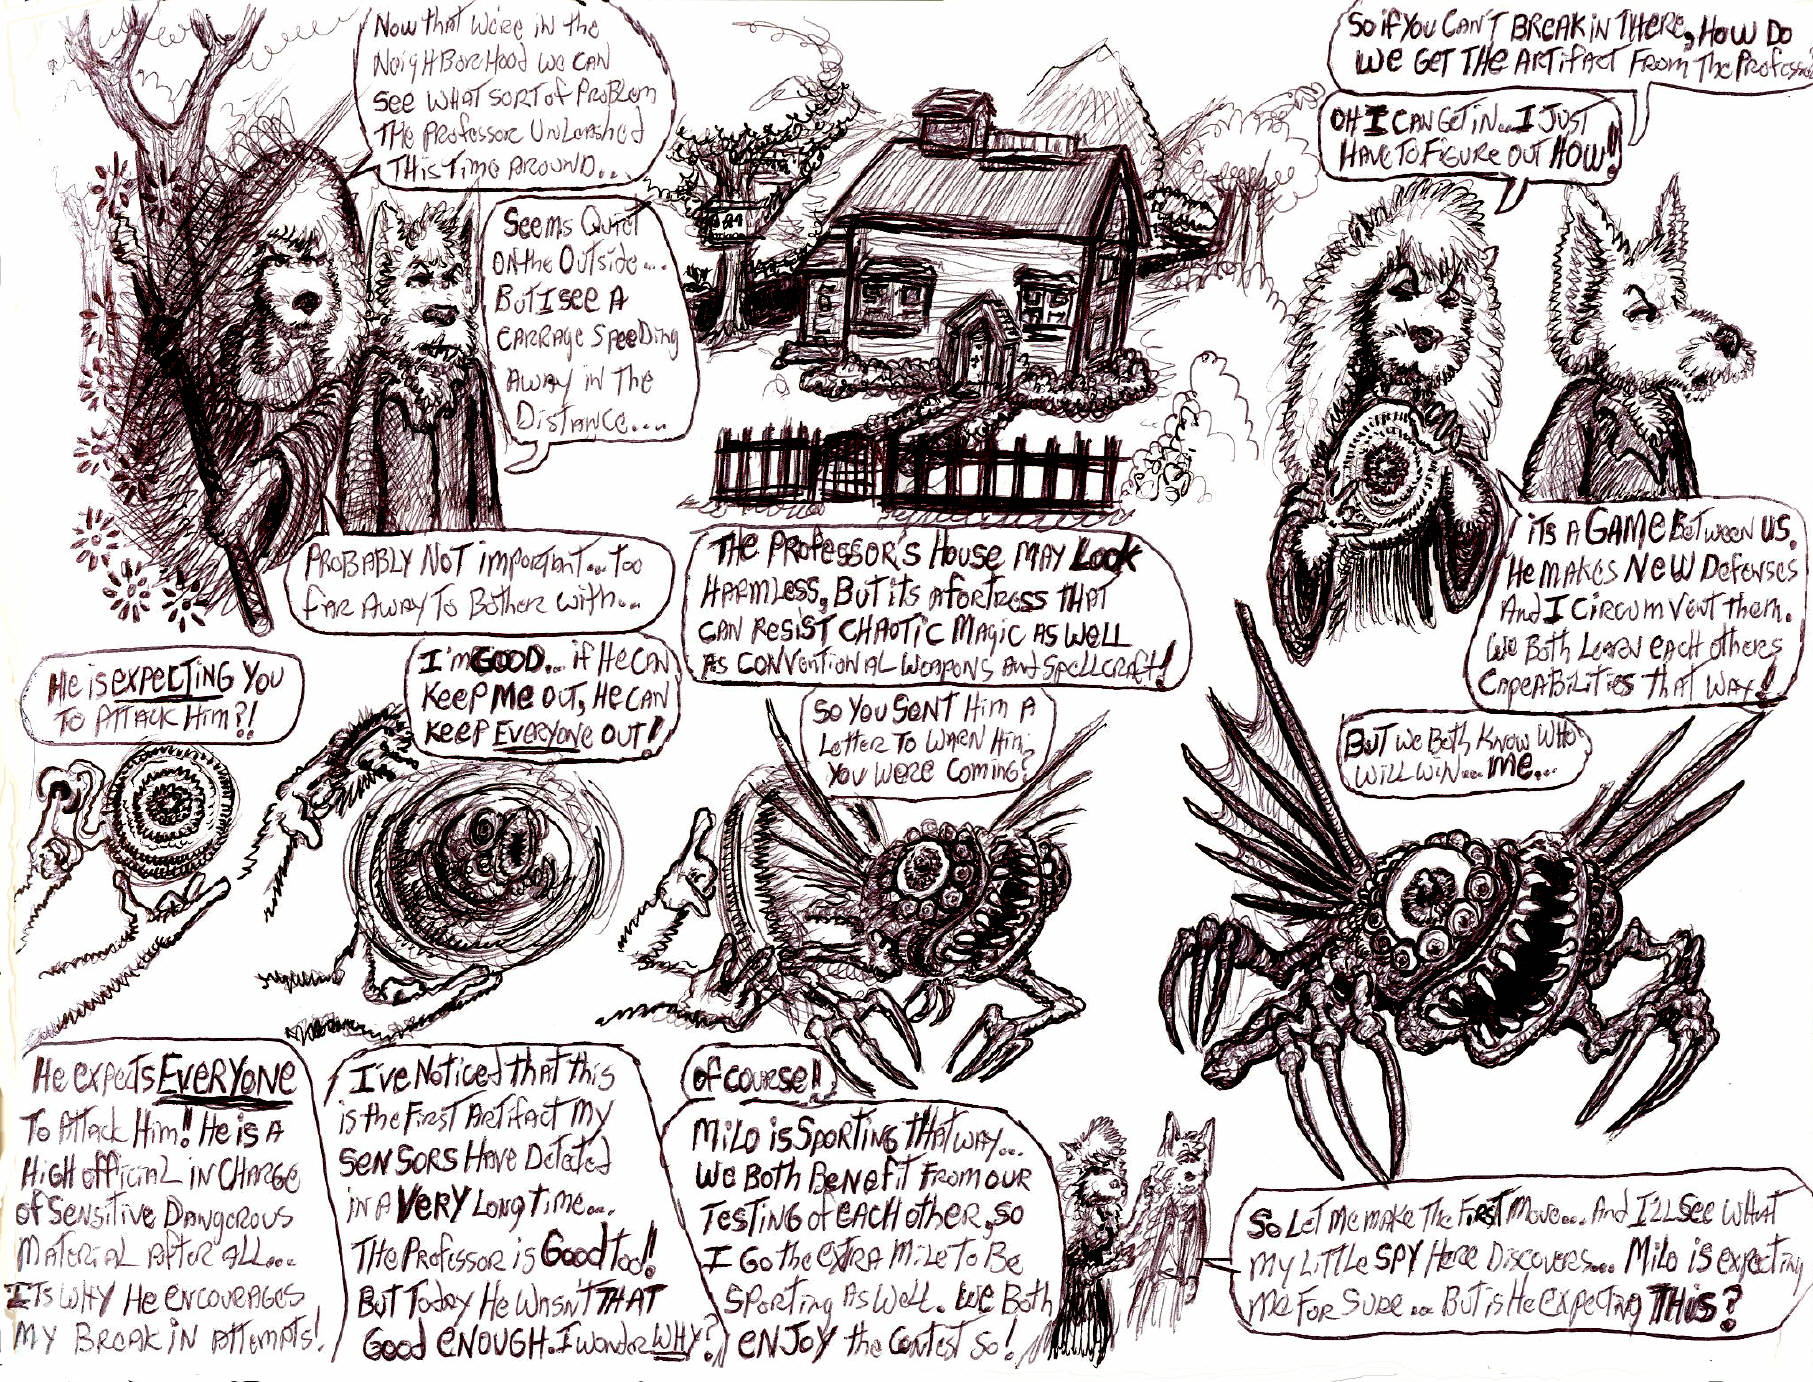 Now that we're in the
Neighborhood we can
see what sort of problem
the professor unleashed
this time around...
Seems Quiet
on the outside...
But I see a
carrage speeding
away in the
Distance....
Probably not important... too
far away to bother with...
The Professor's House may Look
harmless, but its a fortress that
can resist chaotic magic as well
as conventional weapons and spellcraft!
So if you can't break in there, how do
we get the artifact from the Professor
Oh I can get in.. I just
have to figure out how!!
its a GAME between us.
He makes new defenses
and I circumvent them.
We both learn each others
capeabilities that way!
He is expecting you
to attack him?!
I'm GOOD... if he can
keep me out, he can
keep Everyone out!
So you sent him a
letter to warn him
you were coming?
But we both know who
will win... me...
He expects EVERYONE
to attack him! He is a
high official in charge
of sensitive dangorous
material after all...
Its why he encourages
my break in attempts!
I've noticed that this
is the first artifact my
sensors have detected
in a very long time...
The Professor is Good too!!
But today he wasn't THAT
Good enough. I wonder WHY?
Of course!!
Milo is sporting that way...
we both benefit from our
testing of each other, so
I go the extra mile to be
sporting as well. We both
enjoy the contest so!
So let me make the first move... and I'll see what
my little spy here discovers... Milo is expecting
me for sure .. But is he expecting THIS?